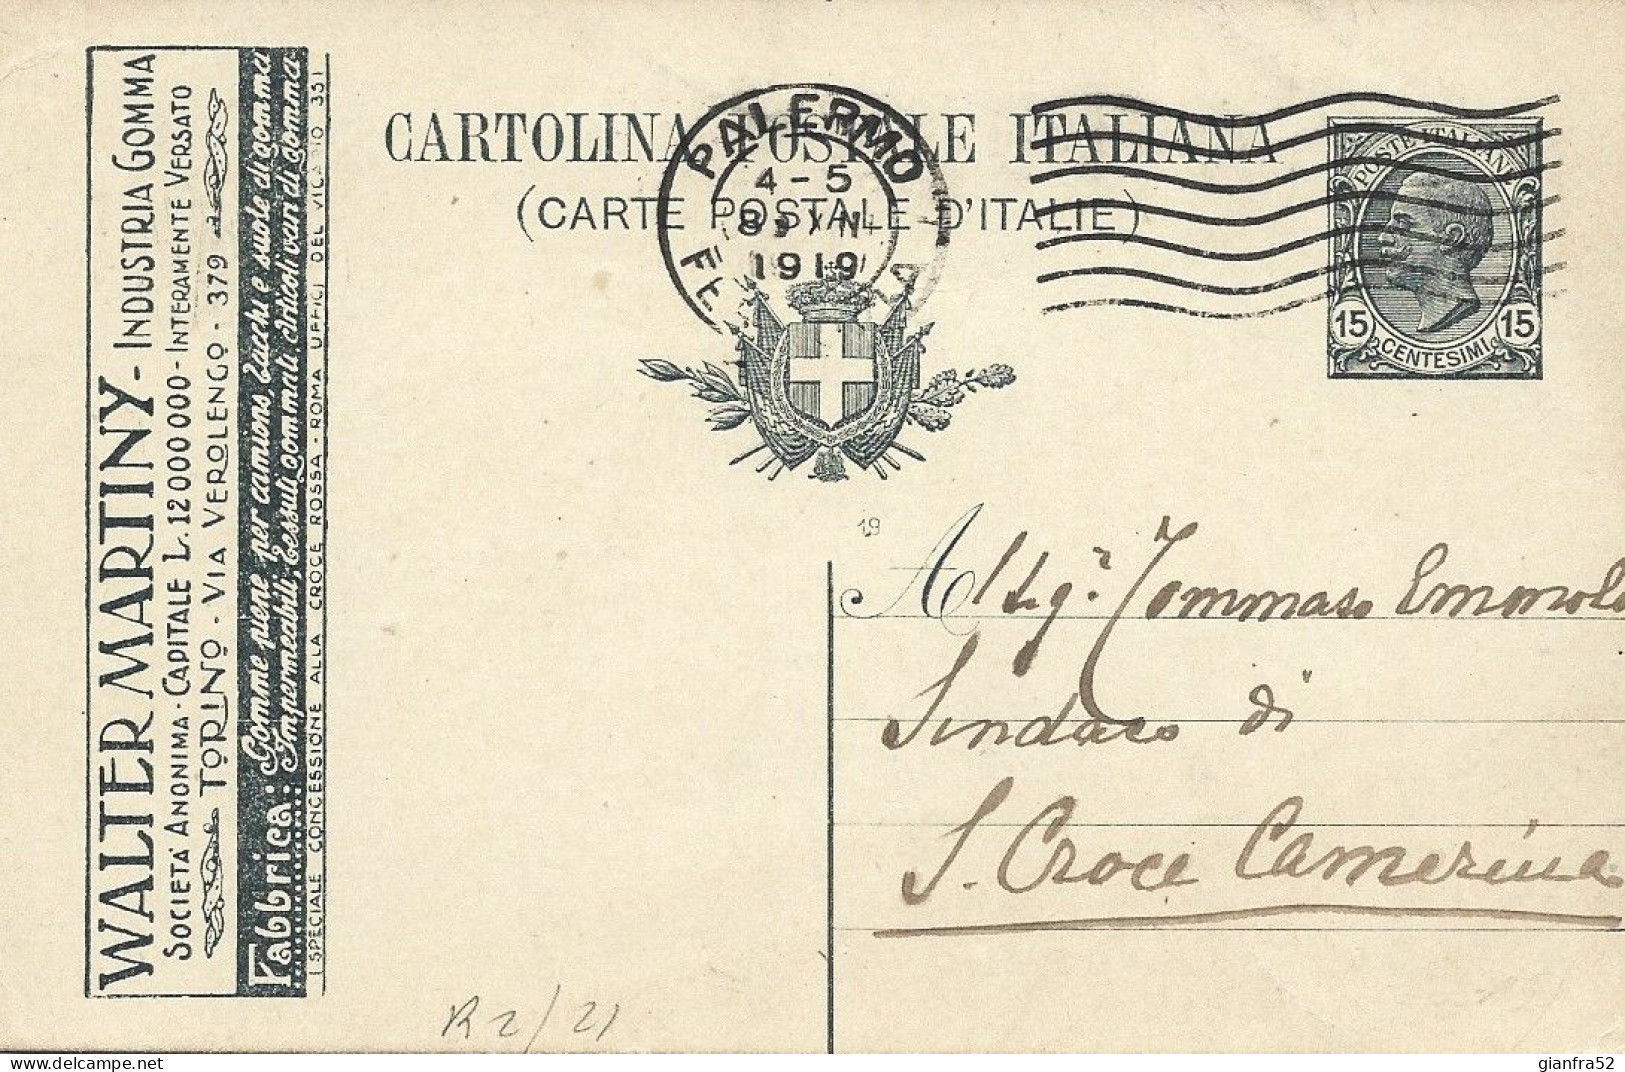 WALTER MARTINY - INDUSTRIA GOMMA
SOCIETÀ ANONIMA - CAPITALE L. 12 000 000 - INTERAMENTE VERSATO
TORINO - VIA VEROLENGO - 379
Fabbrica: Gomme piene per camions, Tacchi e suole di gomma
Impermeabili, Tessuti gommati, Articoli vari di gomma
SPECIALE CONCESSIONE ALLA CROCE ROSSA - ROMA UFFICI DEL VICARIO 351
CARTOLINA POSTALE ITALIANA
(CARTE POSTALE D'ITALIE)
PALERMO
4-5
1919
POSTE ITALIANE
15 CENTESIMI 15
19
All Sig.r Tommaso
Sindaco di
S. Croce Camerina
R 2/21
gianfra52